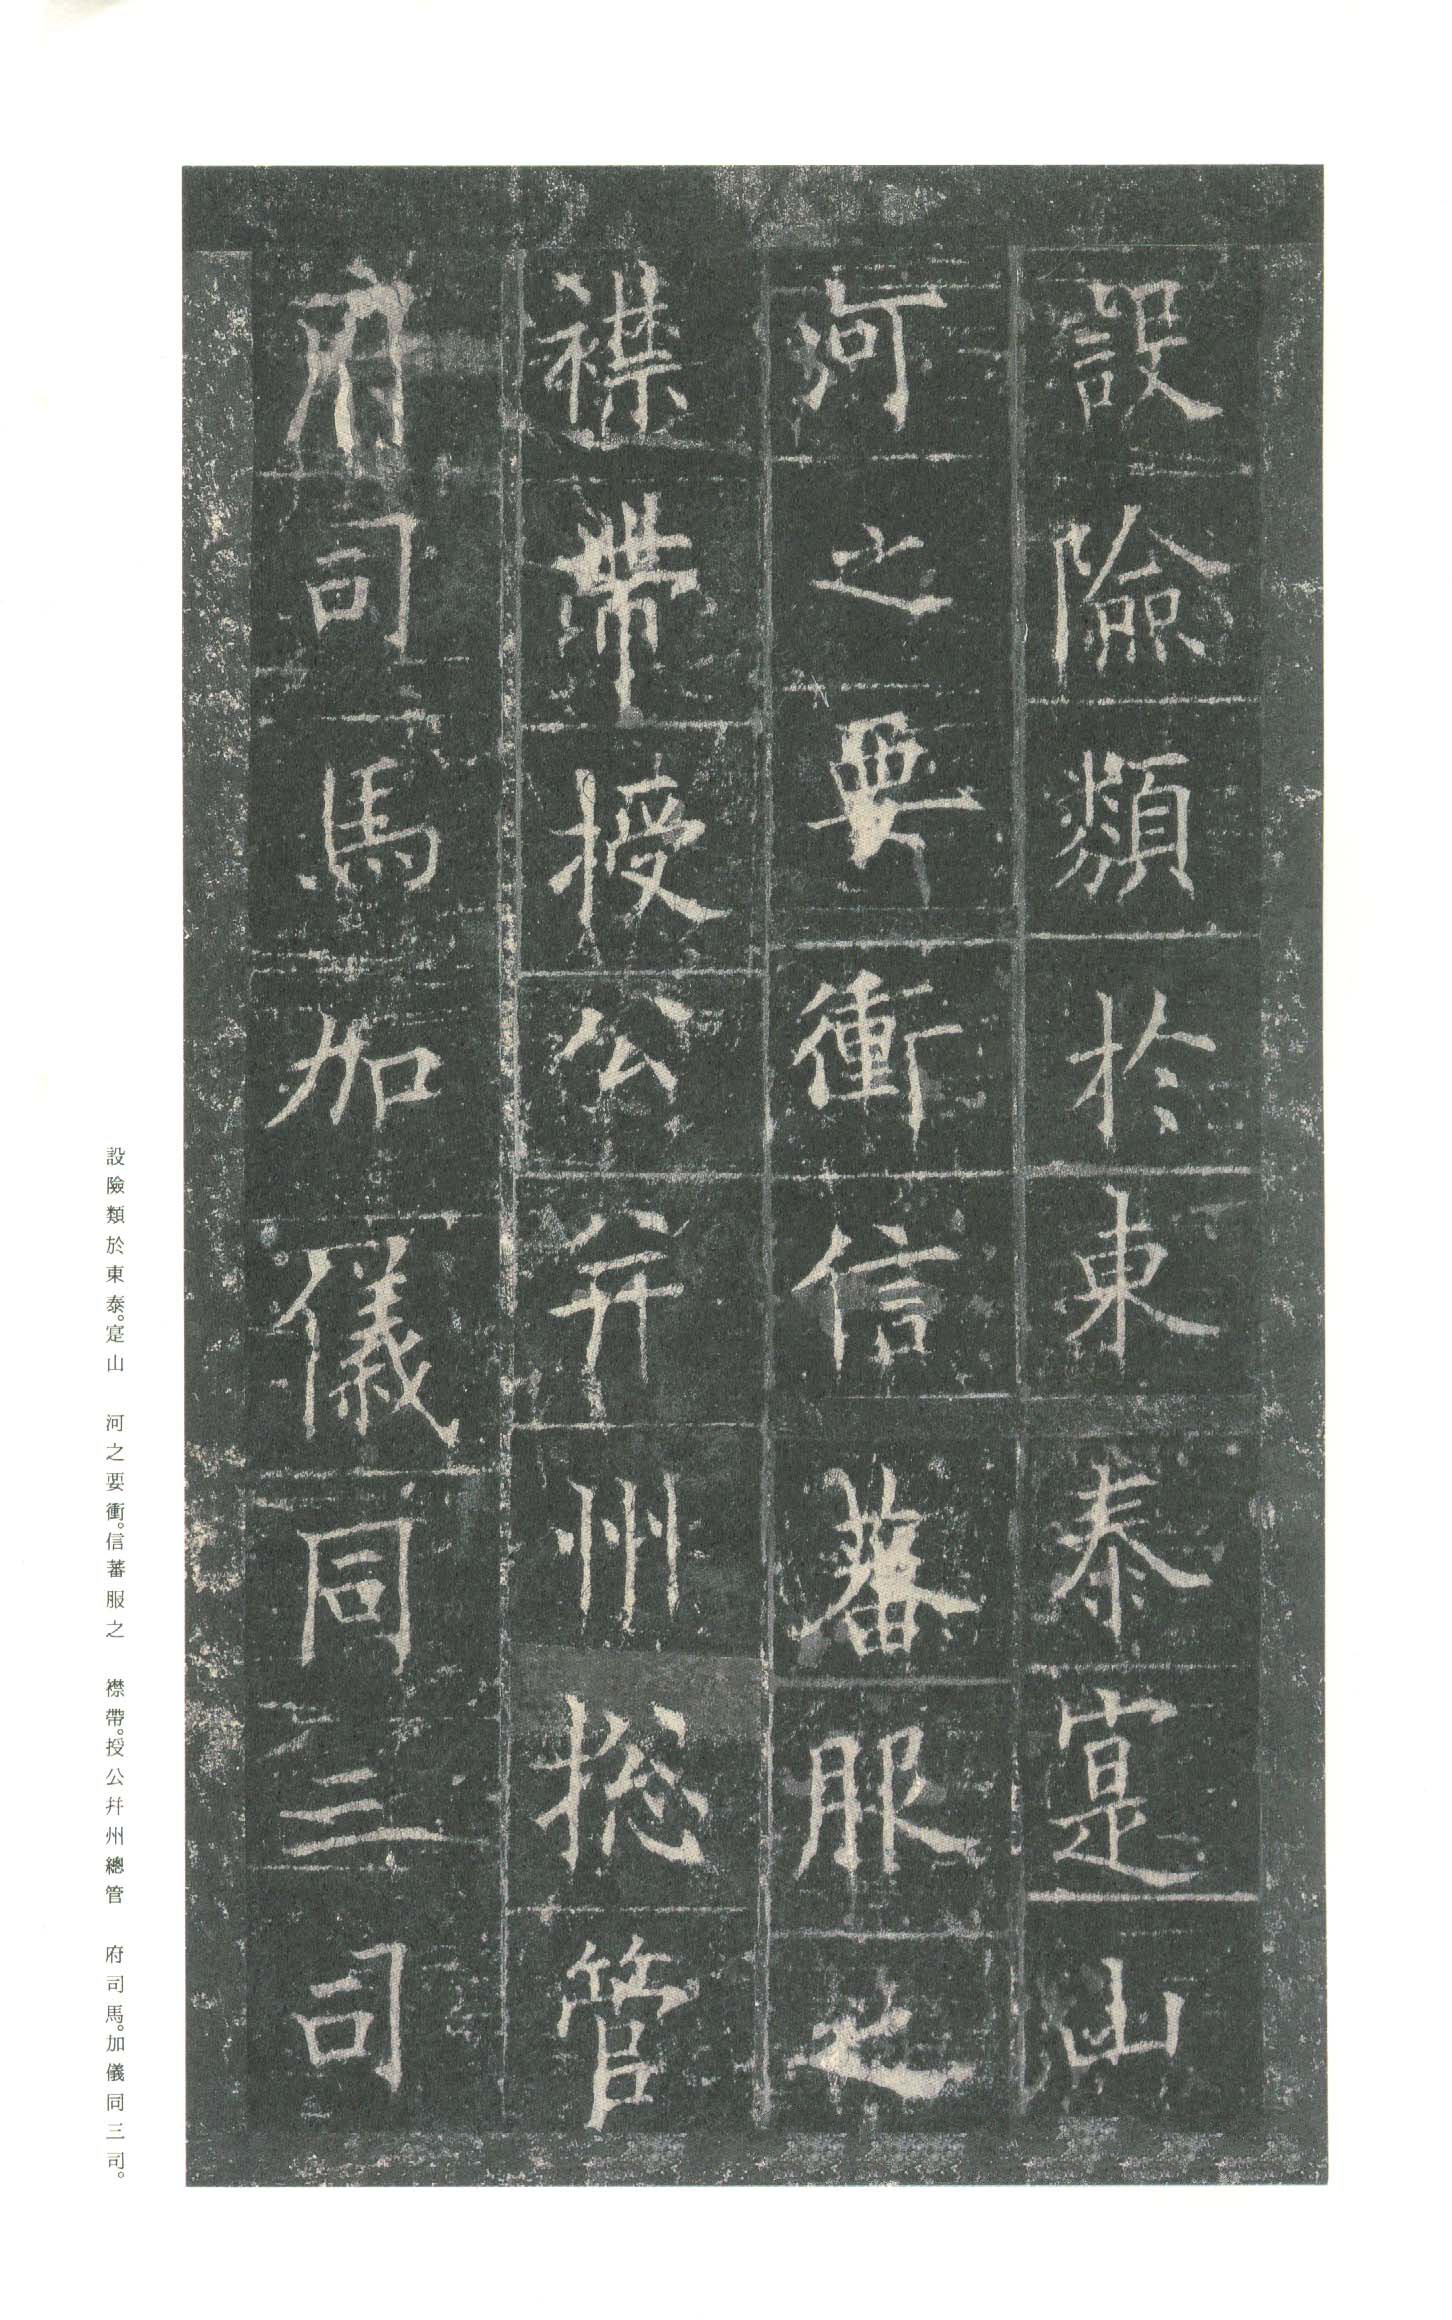 設險類於東泰寔山
河之要衝信蕃服之
襟帶授公并州揔管
府司馬加儀同三司
設險類於東泰。寔山　河之要衝。信蕃服之　襟帶。授公幷州總管　府司馬。加儀同三司。